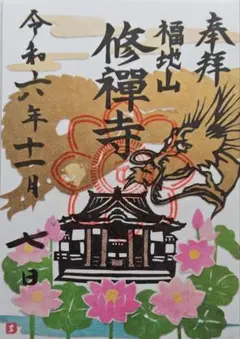 奉拝
福地山
修禅寺
令和六年十一月
七日